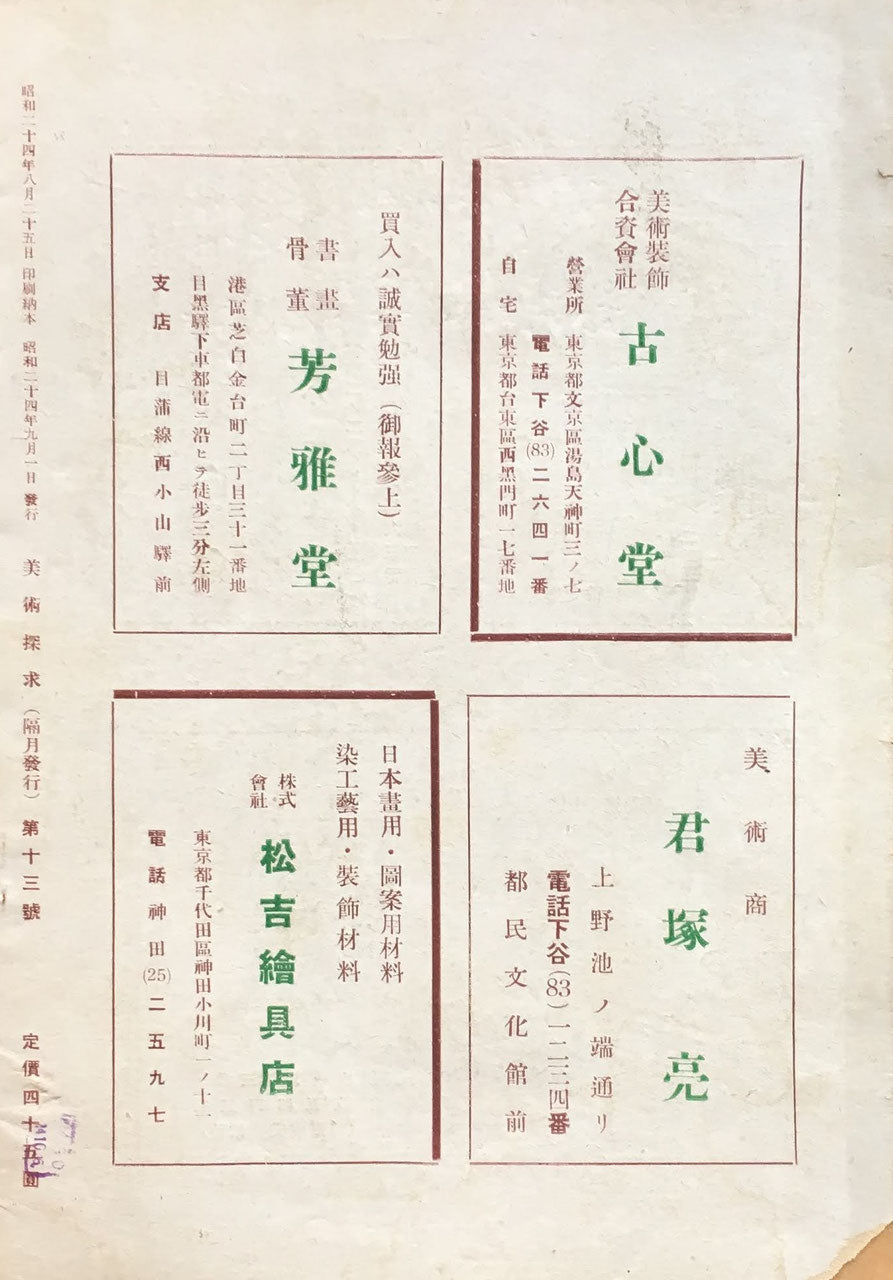 美術装飾
合資會社
古心堂
營業所 東京都文京區湯島天神町三ノ七
電話下谷(83)二六四一番
自宅 東京都台東區西黑門町一七番地
買入ハ誠實勉强(御報參上)
書畫
骨董
芳雅堂
港區芝白金台町二丁目三十一番地
目黑驛下車都電ニ沿ヒテ徒步三分左側
支店 目蒲線西小山驛前
美術商
君塚亮
上野池ノ端通リ
電話下谷(83)一二三四番
都民文化館前
日本畫用・圖案用材料
染工藝用・裝飾材料
株式
會社
松吉繪具店
東京都千代田區神田小川町一ノ十一
電話神田(25)二五九七
昭和二十四年八月二十五日印刷納本 昭和二十四年九月一日發行 美術探求(隔月發行)第十三號 定價四十五圓